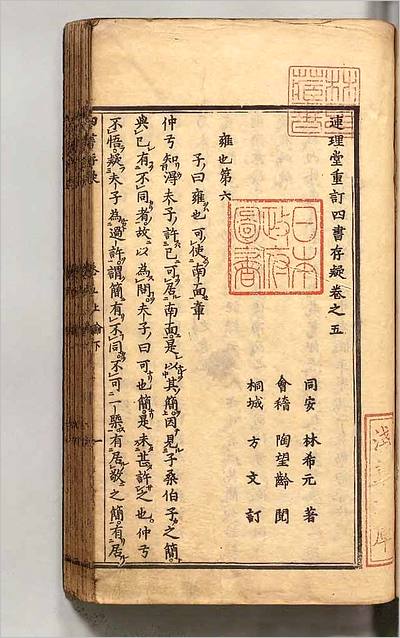 連理堂重訂四書存疑卷之五
同安 林希元 著
會稽 陶望齡 閱
桐城 方文 訂
雍也第六
子曰雍也可使南面章
仲弓知得夫子許已可居南面是以其簡因見子桑伯子之簡
與已有不同者故以為問夫子曰可也簡是未甚許之也仲弓
不悟疑夫子為過許謂簡有不同不可一槩有居敬之簡有居
日本
政府
圖書
林氏
藏書
淺草
庫